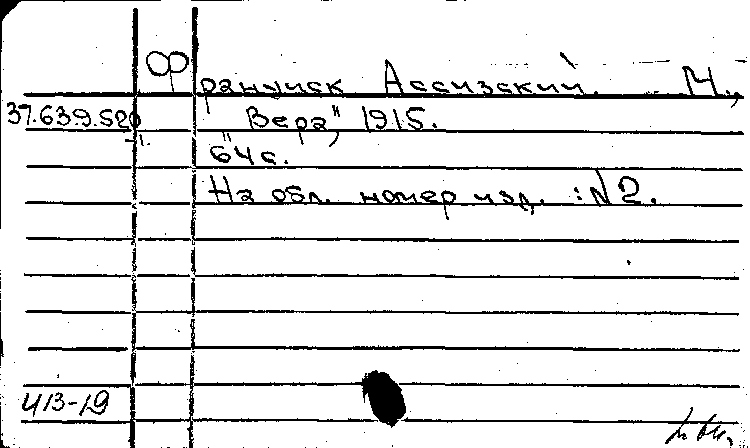 Франциск Ассизский. М.,
37.639.520 „Вера", 1915.
64 с.
На обл. номер изд. : N2.
413-19